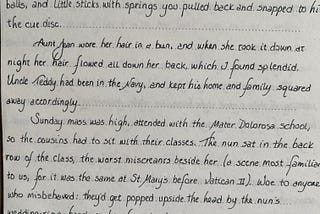 balls, and little sticks with springs you pulled back and snapped to hi
the cue disc.
Aunt Jean wore her hair in a bun, and when she took it down at
night her hair flowed all down her back, which I found splendid.
Uncle Teddy had been in the Navy, and kept his home and family squared
away accordingly.
Sunday mass was high, attended with the Mater Dolorosa school,
so the cousins had to sit with their classes. The nun sat in the back
row of the class, the worst miscreants beside her (a scene most familiar
to us, for it was the same at St. Mary's before Vatican II). Woe to anyone
who misbehaved: they'd get popped upside the head by the nun's